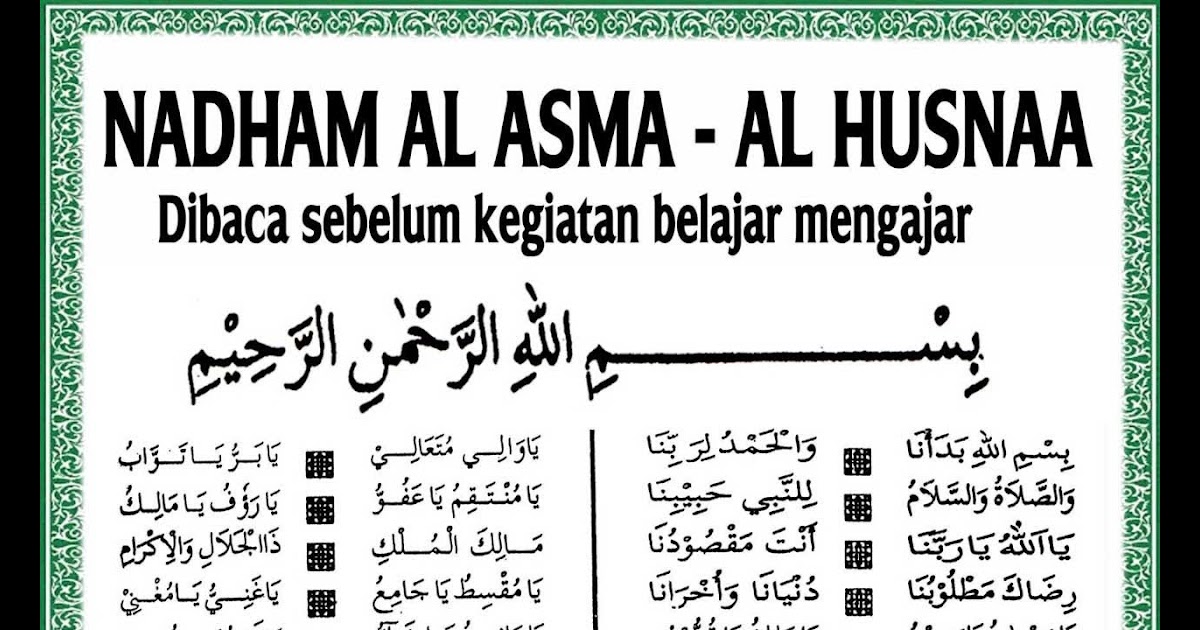 NADHAM AL ASMA - AL HUSNAA
Dibaca sebelum kegiatan belajar mengajar
بِسْـــــــــمِ اللهِ الرَّحْمٰنِ الرَّحِيْمِ
بِسْمِ اللهِ بَدَأْنَا وَالْحَمْدُ لِرَبِّنَا
وَالصَّلَاةُ وَالسَّلَامُ لِلنَّبِي حَبِيْبِنَا
يَا اَللهُ يَا رَبَّنَا أَنْتَ مَقْصُوْدُنَا
رِضَاكَ مَطْلُوْبُنَا دُنْيَانَا وَأُخْرَانَا
يَا وَالِـي مُتَعَالِـيْ يَا بَـرُّ يَـا تَـوَّابُ
يَا مُنْـتَـقِمُ يَا عَفُـوُّ يَا رَؤُفُ يَـا مَالِـكُ
مَـالِكَ الْـمُـلْكِ ذَا الْجَلَالِ وَالْإِكْرَامِ
يَا مُقْسِطُ يَا جَامِعُ يَا غَنِـيُّ يَـا مُغْنِيْ